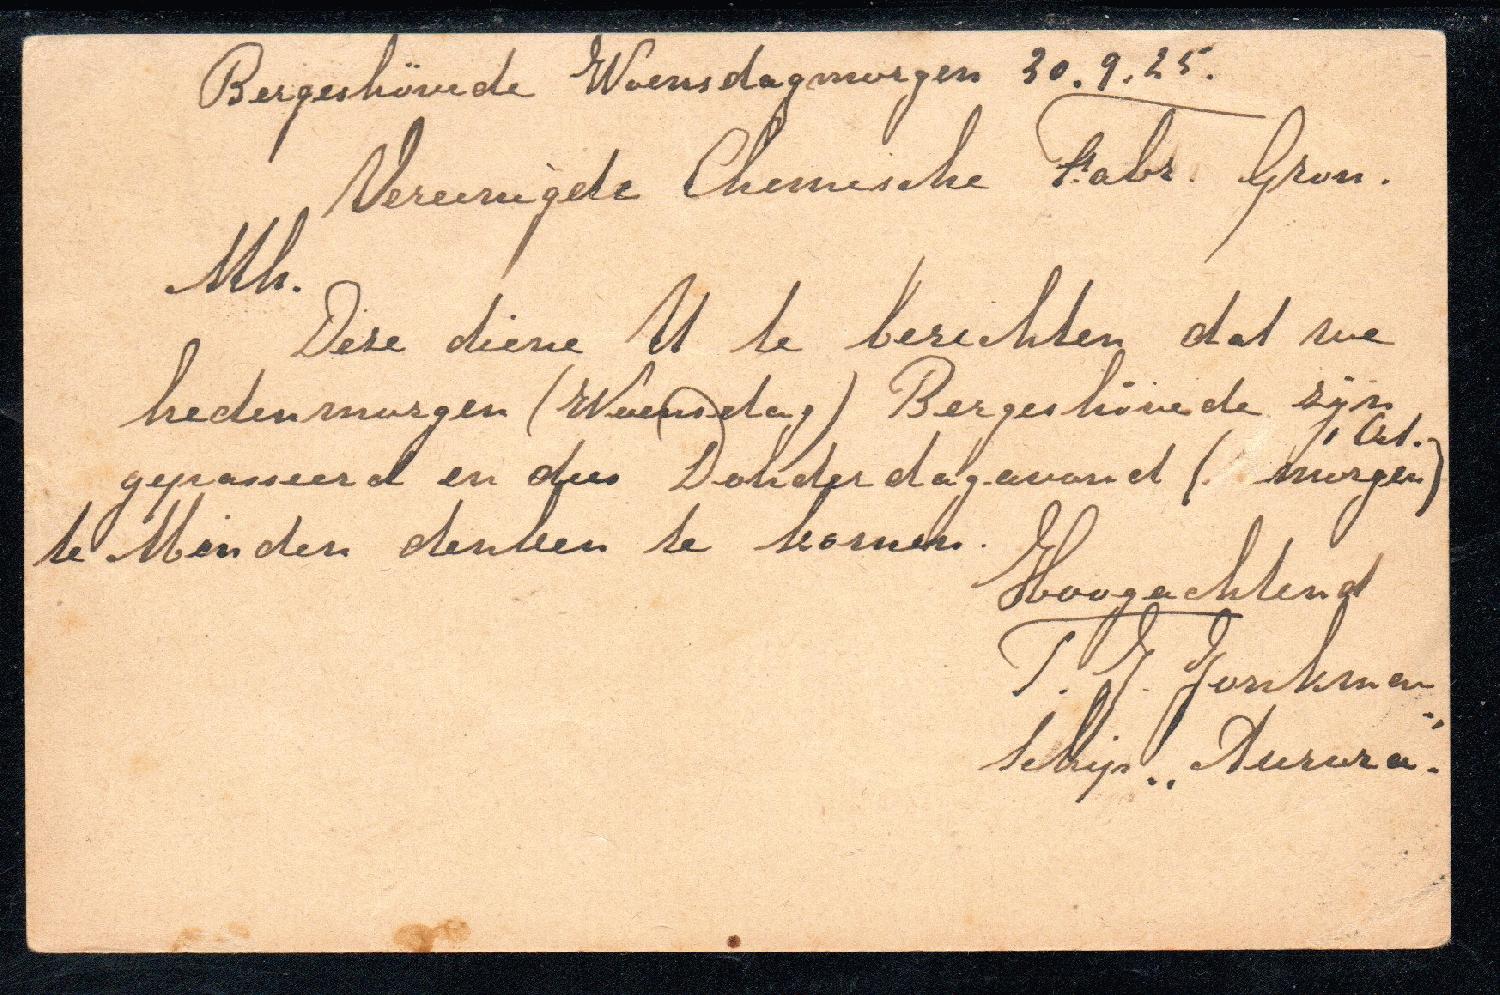 Bergeshövede Woensdagmorgen 30.9.25.
Vereenigde Chemische Fabr. Gron.
Mh.
Deze diene U te berichten dat we
hedenmorgen (Woensdag) Bergeshövede zijn
gepasseerd en dus Donderdagavond (morgen) 1 Oct.
te Minden denken te komen.
Hoogachtend
T. J. Jonkman
schip „Aurora"